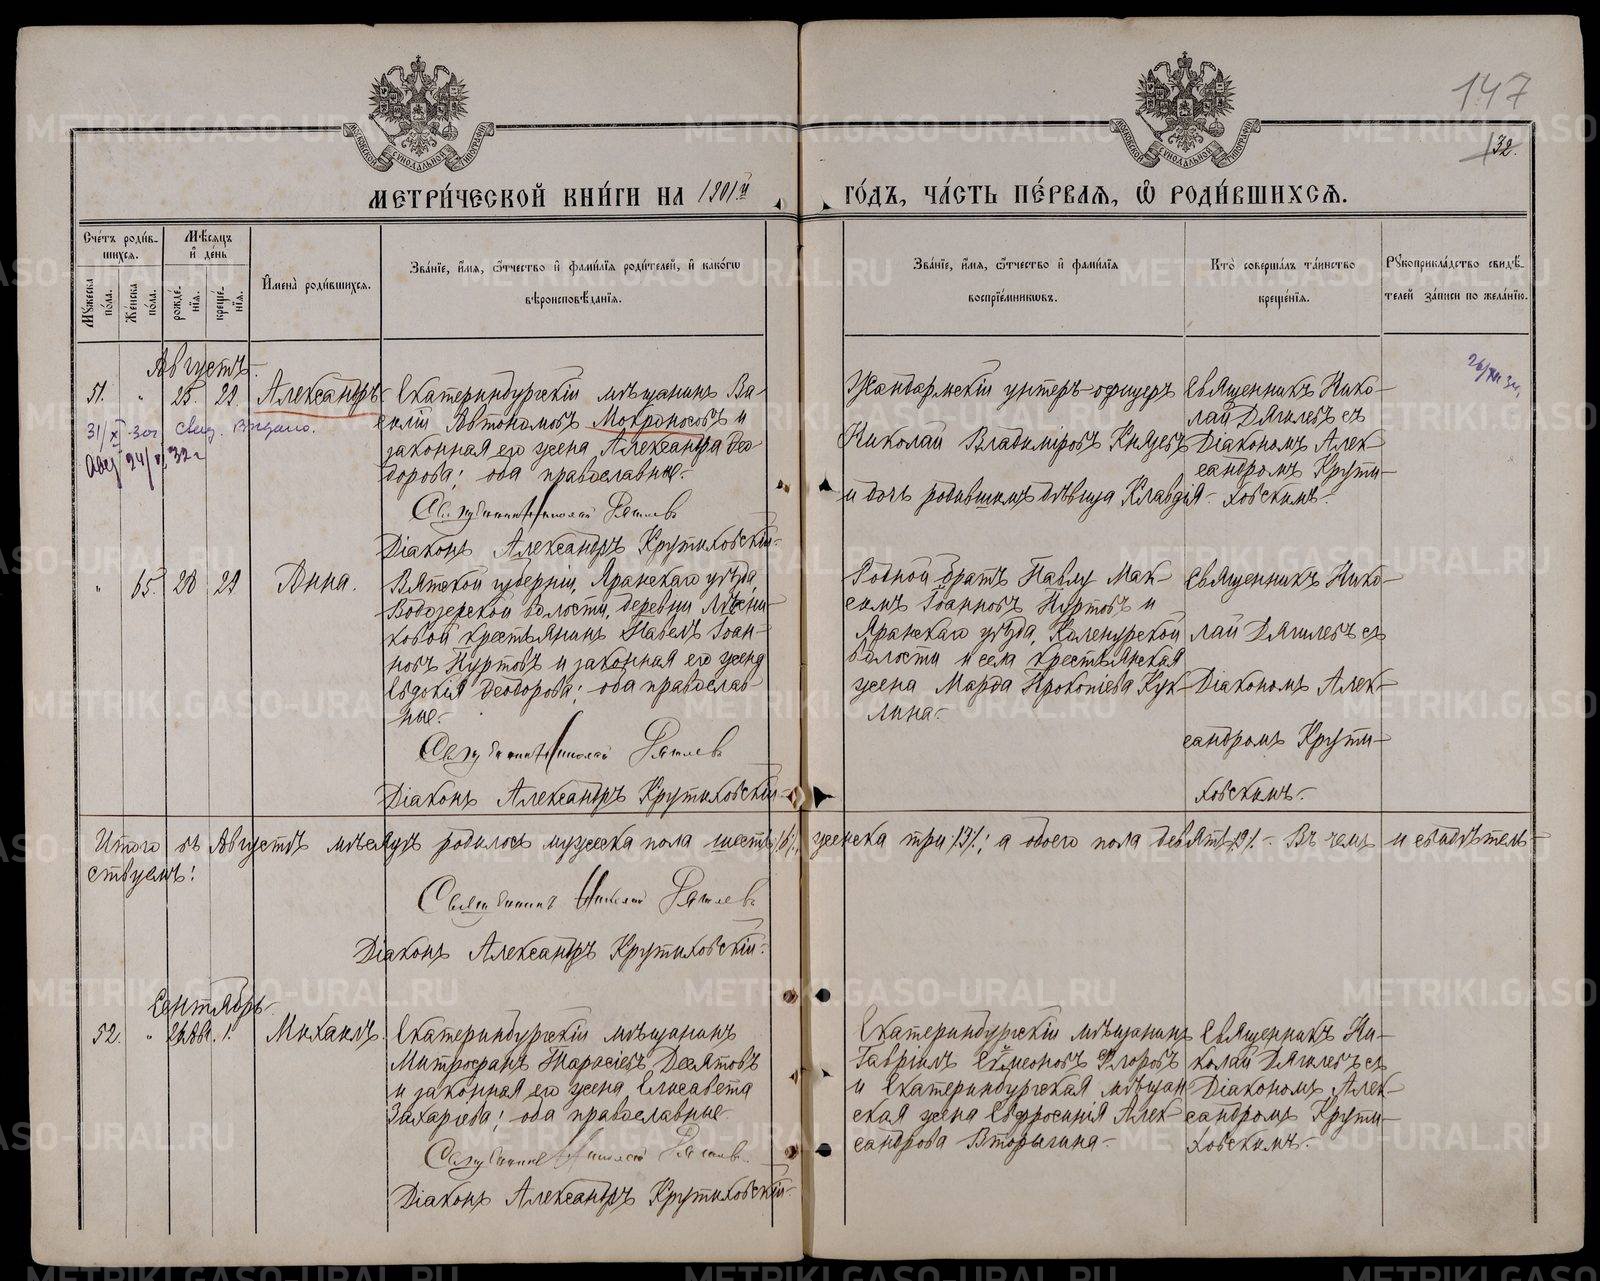 147
132.
МОСКОВСКОЙ СУНОДАЛЬНОЙ ТИПОГРАФІИ
МОСКОВСКОЙ СУНОДАЛЬНОЙ ТИПОГРАФІИ
МЕТРИ́ЧЕСКОЙ КНИ́ГИ НА 1901й ГО́ДЪ, ЧА́СТЬ ПЕ́РВАЯ, Ѡ РОДИ́ВШИХСЯ.
Сче́тъ роди́в-
шихся.
Мꙋжеска по́ла.
Же́нска по́ла.
Мѣ́сяцъ
и҆ де́нь
рожде́-
нїя.
креще́-
нїя.
И҆мена̀ роди́вшихся.
Зва́нїе, и҆́мя, ѻ҆́тчество и҆ фами́лїя роди́телей, и҆ како́гѡ
вѣроисповѣ́данїя.
Зва́нїе, и҆́мя, ѻ҆́тчество и҆ фами́лїя
воспрїе́мникѡвъ.
Кто̀ соверша́лъ та́инство
креще́нїя.
Рꙋкоприкла́дство свидѣ́-
телей за́писи по жела́нїю.
Августъ.
51. " 25. 29. Александръ
Екатеринбургскій мѣщанинъ Ва-
силій Автономовъ Мокроносовъ и
законная его жена Александра Ѳео-
дорова; оба православные.
Священникъ Николай Дягилевъ
Діаконъ Александръ Крутиховскій.
31/XI-30г свид. Выдано.
24/ 32г
Жандармскій унтеръ-офицеръ
Николай Владиміровъ Князевъ
и дочь родившимъ дѣвица Клавдія
Священникъ Нико-
лай Дягилевъ съ
Діакономъ Алек-
сандромъ Крути-
ховскимъ.
" 65. 28 29 Анна.
Вятской губерніи, Яранскаго уѣзда,
Водозерской волости, деревни
крестьянинъ Павелъ Іоан-
новъ Нуртовъ и законная его жена
Евдокія Ѳеодорова; оба православ-
ные.
Священникъ Николай Дягилевъ
Діаконъ Александръ Крутиховскій
Родной братъ Павлу Мак-
симъ Іоанновъ Нуртовъ и
Яранскаго уѣзда,
волости и села крестьянская
жена Марѳа Прокопіева Кук-
лина.
Священникъ Нико-
лай Дягилевъ съ
Діакономъ Алек-
сандромъ Крути-
ховскимъ.
Итого въ Августѣ мѣсяцѣ родилось мужеска пола шесть /6/, женска три /3/; а обоего пола девять /9/. Въ чемъ и свидѣтель-
ствуемъ:
Священникъ Николай Дягилевъ
Діаконъ Александръ Крутиховскій.
Сентябрь
52. " 1. Михаилъ.
Екатеринбургскій мѣщанинъ
Митрофанъ Тарасіевъ Десятовъ
и законная его жена Елисавета
Захарова; оба православные
Священникъ Николай Дягилевъ
Діаконъ Александръ Крутиховскій.
Екатеринбургскій мѣщанинъ
Гавріилъ Симеоновъ Флоровъ
и Екатеринбургская мѣщан
ская жена Евфросинія Алек-
сандрова Вторыгина.
Священникъ Ни-
колай Дягилевъ съ
Діакономъ Алек-
сандромъ Крути-
ховскимъ.
METRIKI.GASO-URAL.RU